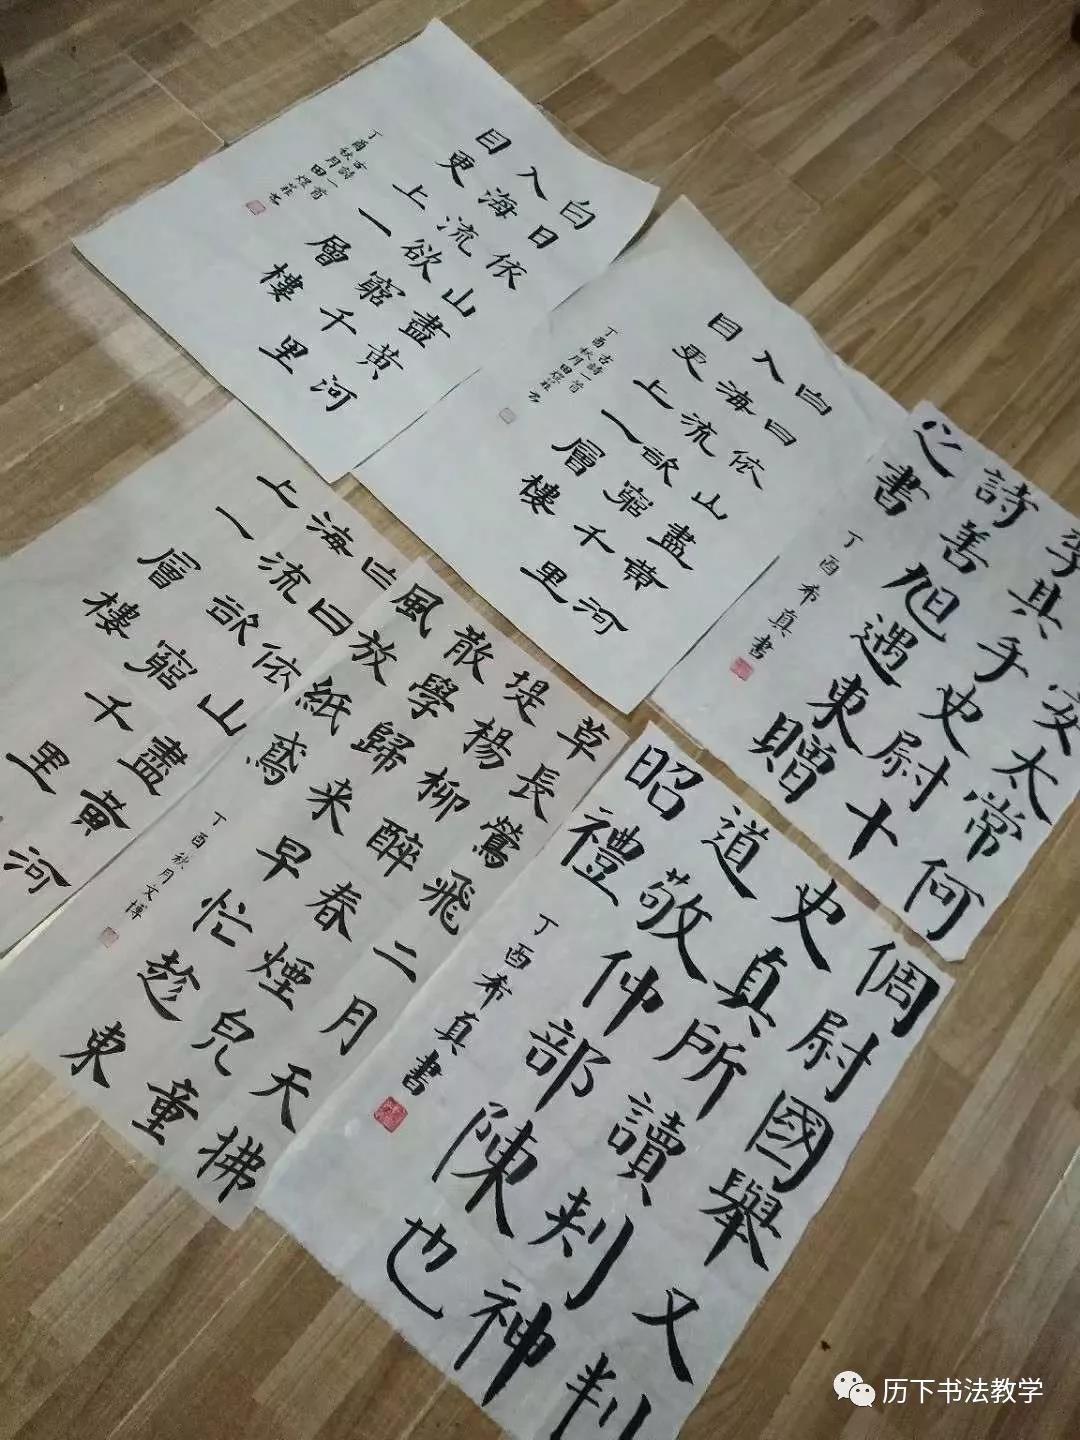 白日依山盡黃河
入海流欲窮千里
目更上一層樓
古詩一首
丁酉秋月田煜菲书
白日依山盡黃河
入海流欲窮千里
目更上一層樓
古詩一首
丁酉秋月田煜菲书
安太常何
李其手史尉十
詩善旭遇東贈
書
丁酉希真書
白日依山盡黃河
海流欲窮千里
上一層樓
草長鶯飛二月天拂
堤楊柳醉春煙兒童
散學歸来早忙趁東
風放紙鳶
丁酉秋月文博
倜尉國舉又判
史真所讀神
道敬仲部陳也
昭禮
丁酉希真書
历下书法教学